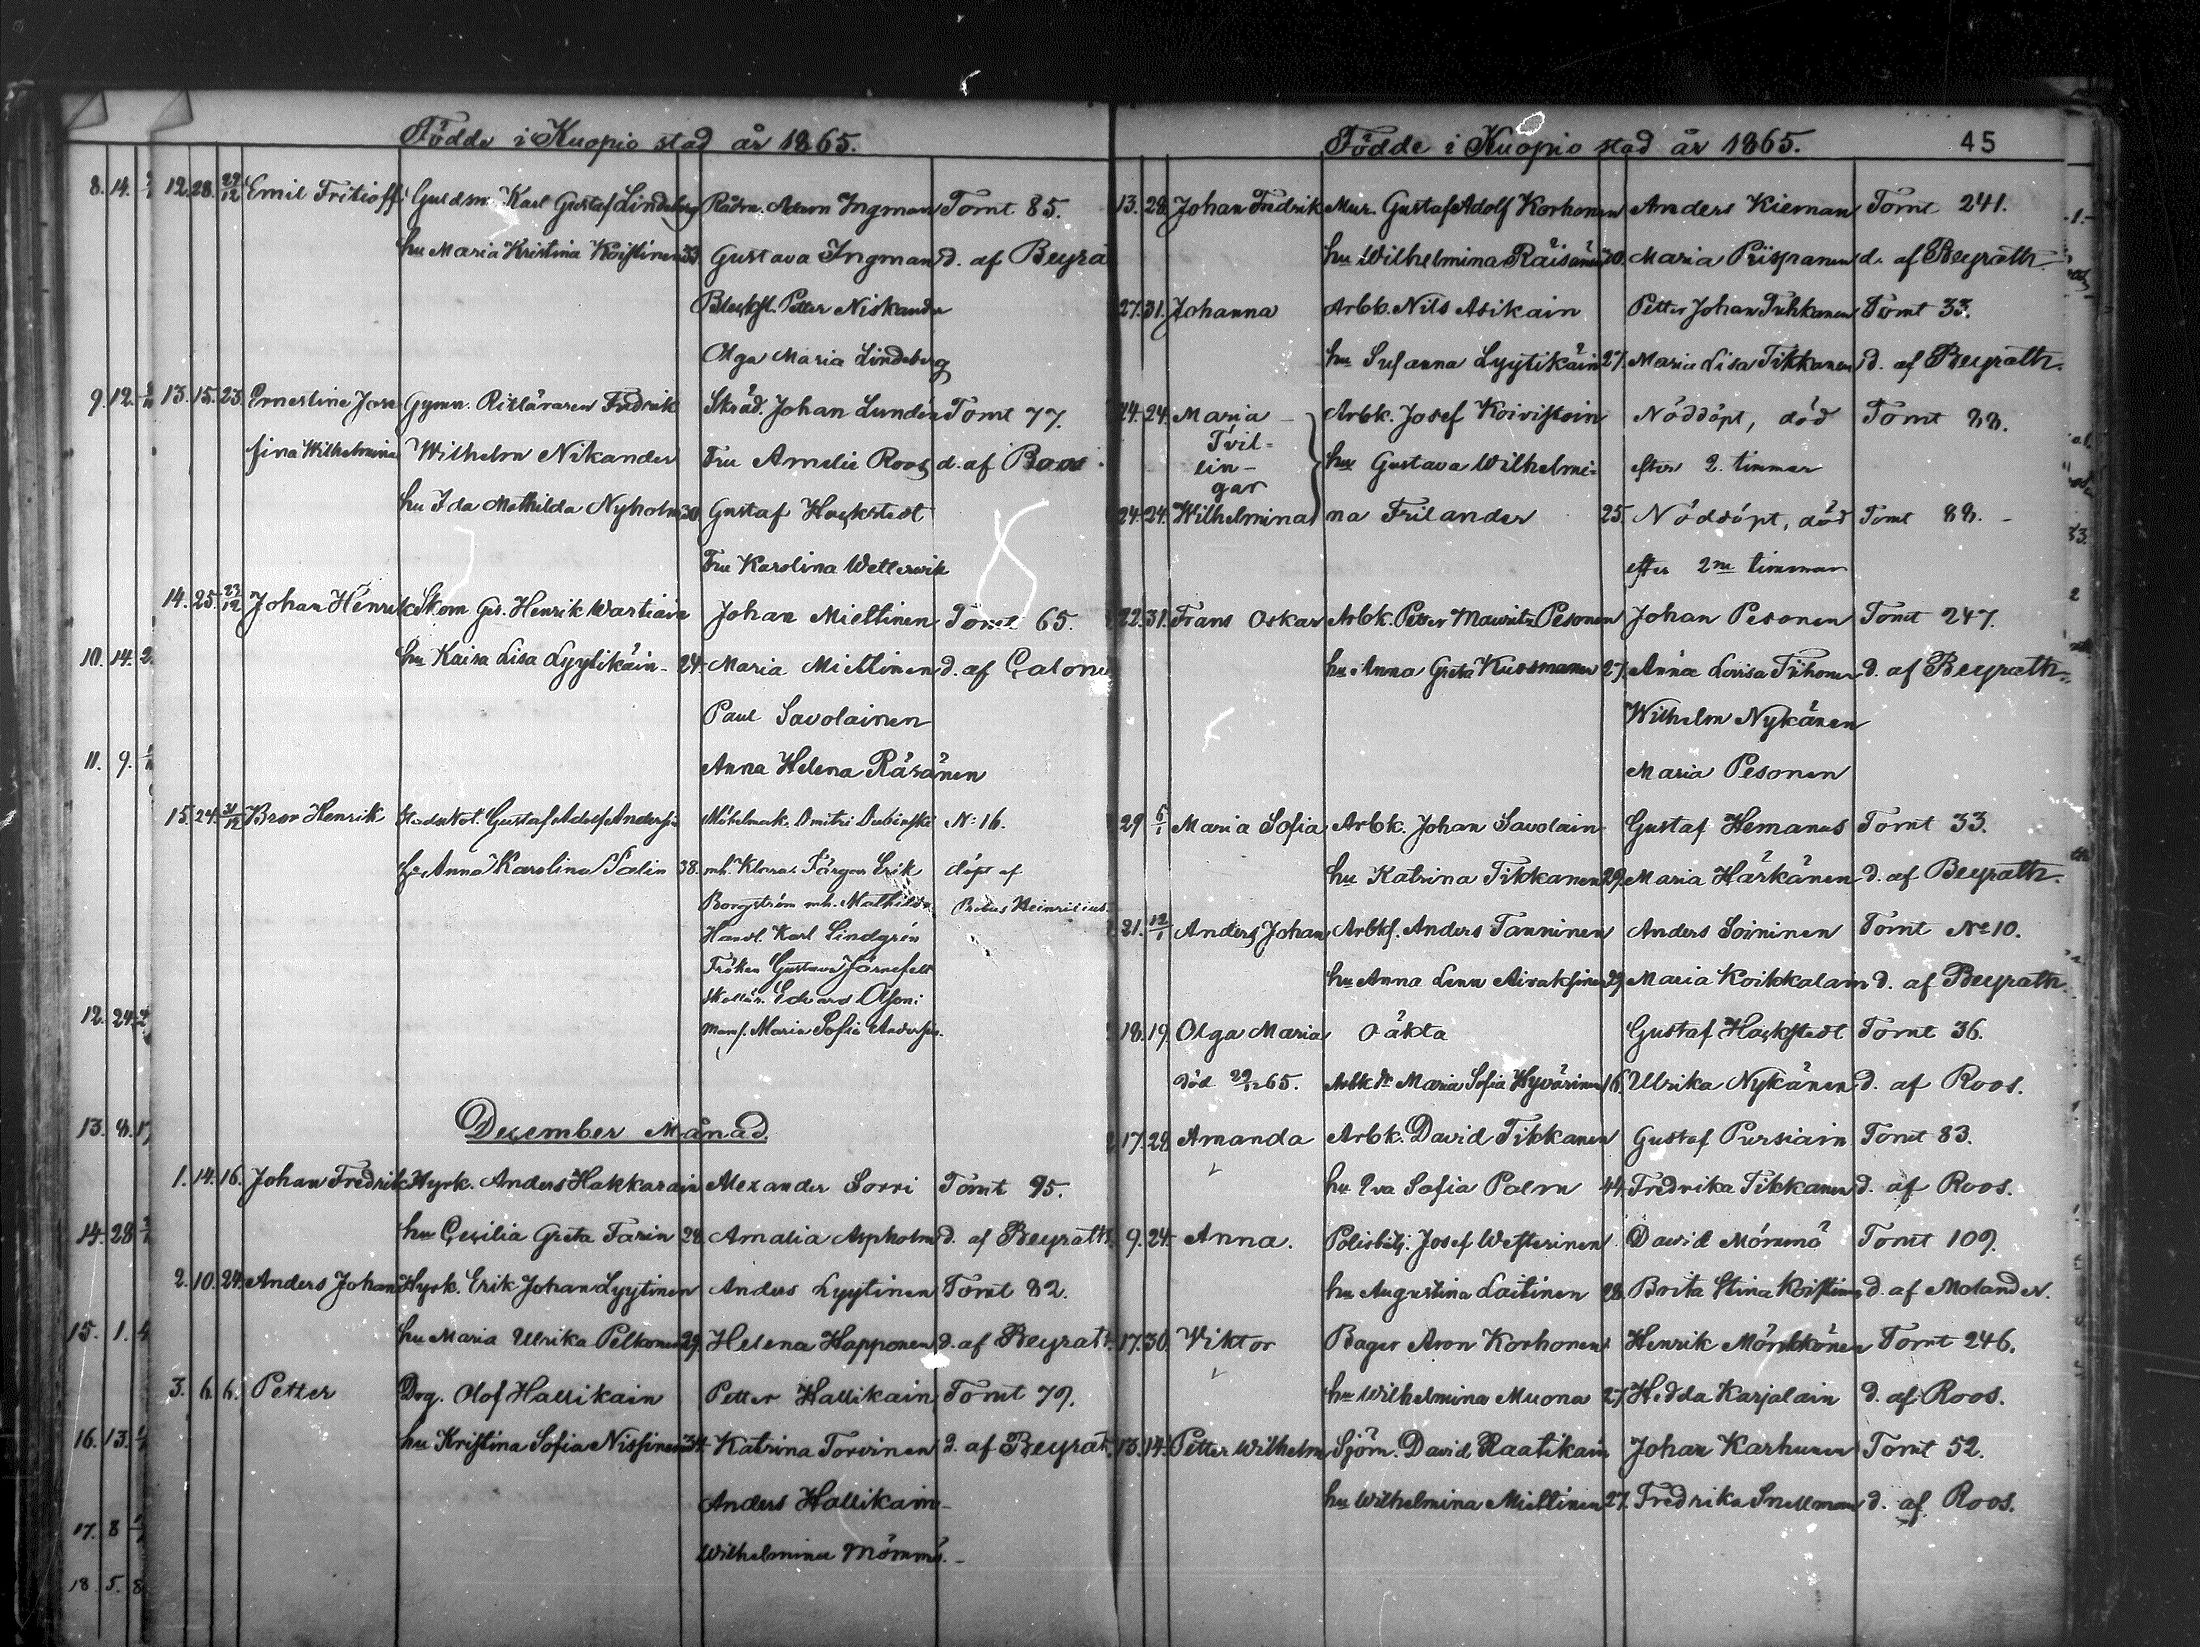 Födde i Kuopio stad år 1865.
12. 28. 29/12 Emil Fritioff Guldsm. Karl Gustaf Lindeberg Rådm. Adam Ingman Tomt 85.
hu Maria Kristina Koistinen 33 Gustava Ingman d. af Beyra
Petter Niskanen
Olga Maria Lindeberg
13. 15. 23. Ernestine Jose Gymn. Ritläraren Fredrik Skräd. Johan Lundén Tomt 77.
fina Wilhelmina Wilhelm Nikander Fru Amelie Roos d. af Roos
hu Ida Mathilda Nyholm 30 Gustaf Hackstedt
Fru Karolina
14. 25. Johan Henrik Skom. Ges. Henrik Wartiain Johan Miettinen Tomt 65.
hu Kaisa Lisa Lyytikäin 24. Maria Miettinen d. af
Paul Savolainen
Anna Helena Räsänen
15. 24. Bror Henrik Gustaf Adolf Dmitri No 16.
Anna Karolina 38. Klara. Färgar Erik döpt af
Borgström Mathilda
Handl. Karl Lindgrén
Fröken Gustava Järnefelt
Edvard
Maria Sofia
December Månad.
1. 14. 16. Johan Fredrik Hyrk. Anders Hakkarain Alexander Sorri Tomt 95.
hu Cecilia Greta Farin 28. Amalia Aspholm d. af Beyrath.
2. 10. 24. Anders Johan Hyrk. Erik Johan Lyytinen Anders Lyytinen Tomt 82.
hu Maria Ulrika Pelkonen 29. Helena Happonen d. af Beyrath.
3. 6. 6. Petter Drg. Olof Hallikain Petter Hallikain Tomt 79.
hu Kristina Sofia Nissinen 34. Katrina Torvinen d. af Beyrat
Anders Hallikain
Wilhelmina Mömmö.
Födde i Kuopio stad år 1865. 45
13. 28. Johan Fredrik Mur. Gustaf Adolf Korhonen Anders Kieman Tomt 241.
hu Wilhelmina Räisänen 20. Maria Piispanen d. af Beyrath.
27. 31. Johanna Arbk. Nils Asikain Petter Johan Tuhkanen Tomt 33.
hu Susanna Lyytikäin 27. Maria Lisa Tikkanen d. af Beyrath.
24. 24. Maria Arbk. Josef Koivistoin Nöddöpt, död Tomt 88.
Tvil-
lin- hu Gustava Wilhelmi- efter 2. timmar
gar
24. 24. Wilhelmina na Frilander 25. Nöddöpt, död Tomt 88.
efter 2ne timmar
22. 31. Frans Oskar Arbk. Petter Mauritz Pesonen Johan Pesonen Tomt 247.
hu Anna Greta Kuosmanen 27. Anna Lovisa Tiihonen d. af Beyrath.
Wilhelm Nykänen
Maria Pesonen
29 6/1 Maria Sofia Arbk. Johan Savolain Gustaf Hemanus Tomt 33.
hu Katrina Tikkanen 29. Maria Härkänen d. af Beyrath.
21. 12/1 Anders Johan Arbk. Anders Tanninen Anders Soininen Tomt No 10.
hu Anna Lena Airaksinen 29. Maria Koikkalain d. af Beyrath.
18. 19. Olga Maria Oäkta Gustaf Hackstedt Tomt 36.
död 29/12 65. Arbk dr Maria Sofia Hyvärinen 16. Ulrika Nykänen d. af Roos.
17. 29. Amanda Arbk. David Tikkanen Gustaf Pursiain Tomt 83.
hu Eva Sofia Palm 44. Fredrika Tikkanen d. af Roos.
9. 24. Anna. Polisbetj. Josef Westerinen David Mömmö Tomt 109.
hu Augustina Laitinen 28. Brita Stina Koistinen d. af Molander.
17. 30. Viktor Bager Aron Korhonen Henrik Mönkkönen Tomt 246.
hu Wilhelmina Muona 27. Hedda Karjalain d. af Roos.
13. 14. Petter Wilhelm Sjöm. David Raatikain Johan Karhunen Tomt 52.
hu Wilhelmina Miettinen 27. Fredrika Snellman d. af Roos.